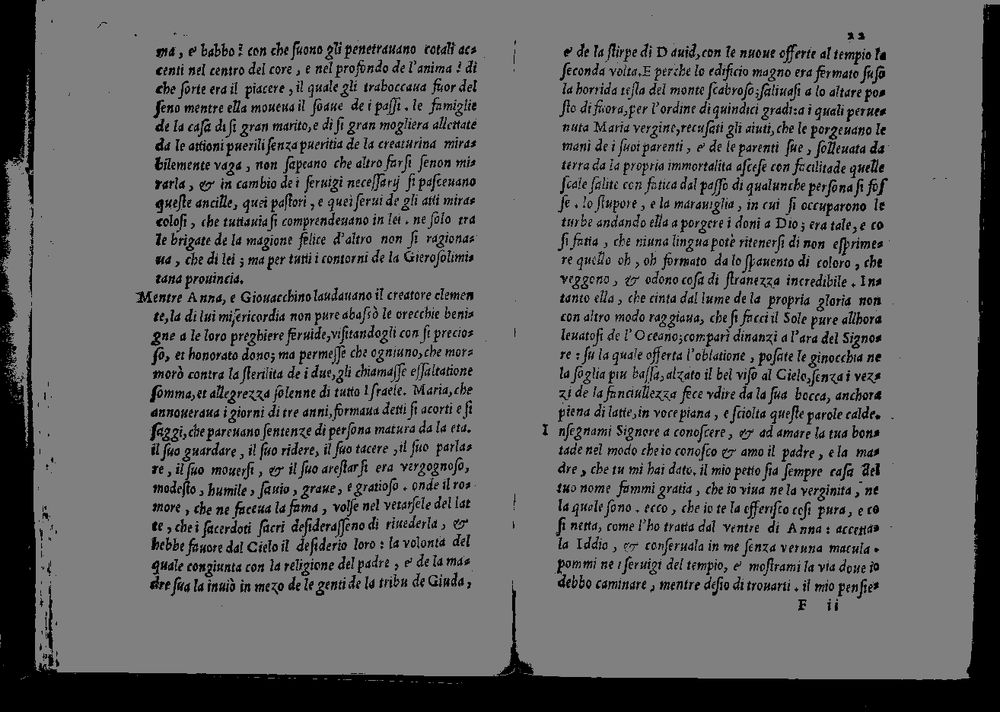 ma, e babbo? con che suono gli penetrauano cotali ac=
centi nel centro del core, e nel profondo de l'anima? di
che sorte era il piacere, il quale gli traboccaua fuor del
seno mentre ella moueua il soaue de i passi. le famiglie
de la casa di si gran marito, e di si gran mogliera allettate
da le attioni puerili senza pueritia de la creaturina mira=
bilemente vaga, non sapeano che altro farsi senon mi=
rarla, & in cambio de i seruigi necessarij si pasceuano
queste ancille, quei pastori, e quei serui de gli atti mira=
colosi, che tuttauia si comprendeuano in lei. ne solo tra
le brigate de la magione felice d'altro non si ragiona=
ua, che di lei; ma per tutti i contorni de la Gierosolimi=
tana prouincia.
Mentre Anna, e Giouacchino laudauano il creatore clemen
te, la di lui misericordia non pure abassò le orecchie beni=
gne a le loro preghiere feruide, visitandogli con si precio=
so, et honorato dono; ma permesse che ogniuno, che mor=
morò contra la sterilita de i due, gli chiamasse essaltatione
somma, et allegrezza solenne di tutto Israele. Maria, che
annoueraua i giorni di tre anni, formaua detti si acorti e si
saggi, che pareuano sentenze di persona matura da la eta.
il suo guardare, il suo ridere, il suo tacere, il suo parla=
re, il suo mouersi, & il suo arestarsi era vergognoso,
modesto, humile, sauio, graue, e gratioso. onde il ro=
more, che ne faceua la fama, volse nel vetarsele del lat
te, che i sacerdoti sacri desiderasseno di riuederla, &
hebbe fauore dal Cielo il desiderio loro: la volonta del
quale congiunta con la religione del padre, e de la ma=
dre sua la inuiò in mezo de le genti de la tribu de Giuda,
22
e de la stirpe di Dauid, con le nuoue offerte al tempio la
seconda volta. E perche lo edificio magno era fermato suso
la horrida testa del monte scabroso; saliuasi a lo altare po=
sto di fuora, per l'ordine di quindici gradi: a i quali perue=
nuta Maria vergine, recusati gli aiuti, che le porgeuano le
mani de i suoi parenti, e de le parenti sue, solleuata da
terra da la propria immortalita ascese con facilitade quelle
scale salite con fatica dal passo di qualunche persona si fos
se. lo stupore, e la marauiglia, in cui si occuparono le
turbe andando ella a porgere i doni a Dio; era tale, e co
si fatta, che niuna lingua potè ritenersi di non esprime=
re quello oh, oh formato da lo spauento di coloro, che
veggono, & odono cosa di stranezza incredibile. In=
tanto ella, che cinta dal lume de la propria gloria non
con altro modo raggiaua, che si facci il Sole pure allhora
leuatosi de l'Oceano; comparì dinanzi a l'ara del Signo=
re: su la quale offerta l'oblatione, posate le ginocchia ne
la soglia piu bassa, alzato il bel viso al Cielo, senza i vez=
zi de la fanciullezza fece vdire da la sua bocca, anchora
piena di latte, in voce piana, e sciolta queste parole calde.
Insegnami Signore a conoscere, & ad amare la tua bon=
tade nel modo che io conosco & amo il padre, e la ma=
dre, che tu mi hai dato. il mio petto sia sempre casa del
tuo nome fammi gratia, che io viua ne la verginita, ne
la quale sono. ecco, che io te la offerisco cosi pura, e co
si netta, come l'ho tratta dal ventre di Anna: accetta=
la Iddio, & conseruala in me senza veruna macula.
pommi ne i seruigi del tempio, e mostrami la via doue io
debbo caminare, mentre desio di trouarti. il mio pensie=
F ii